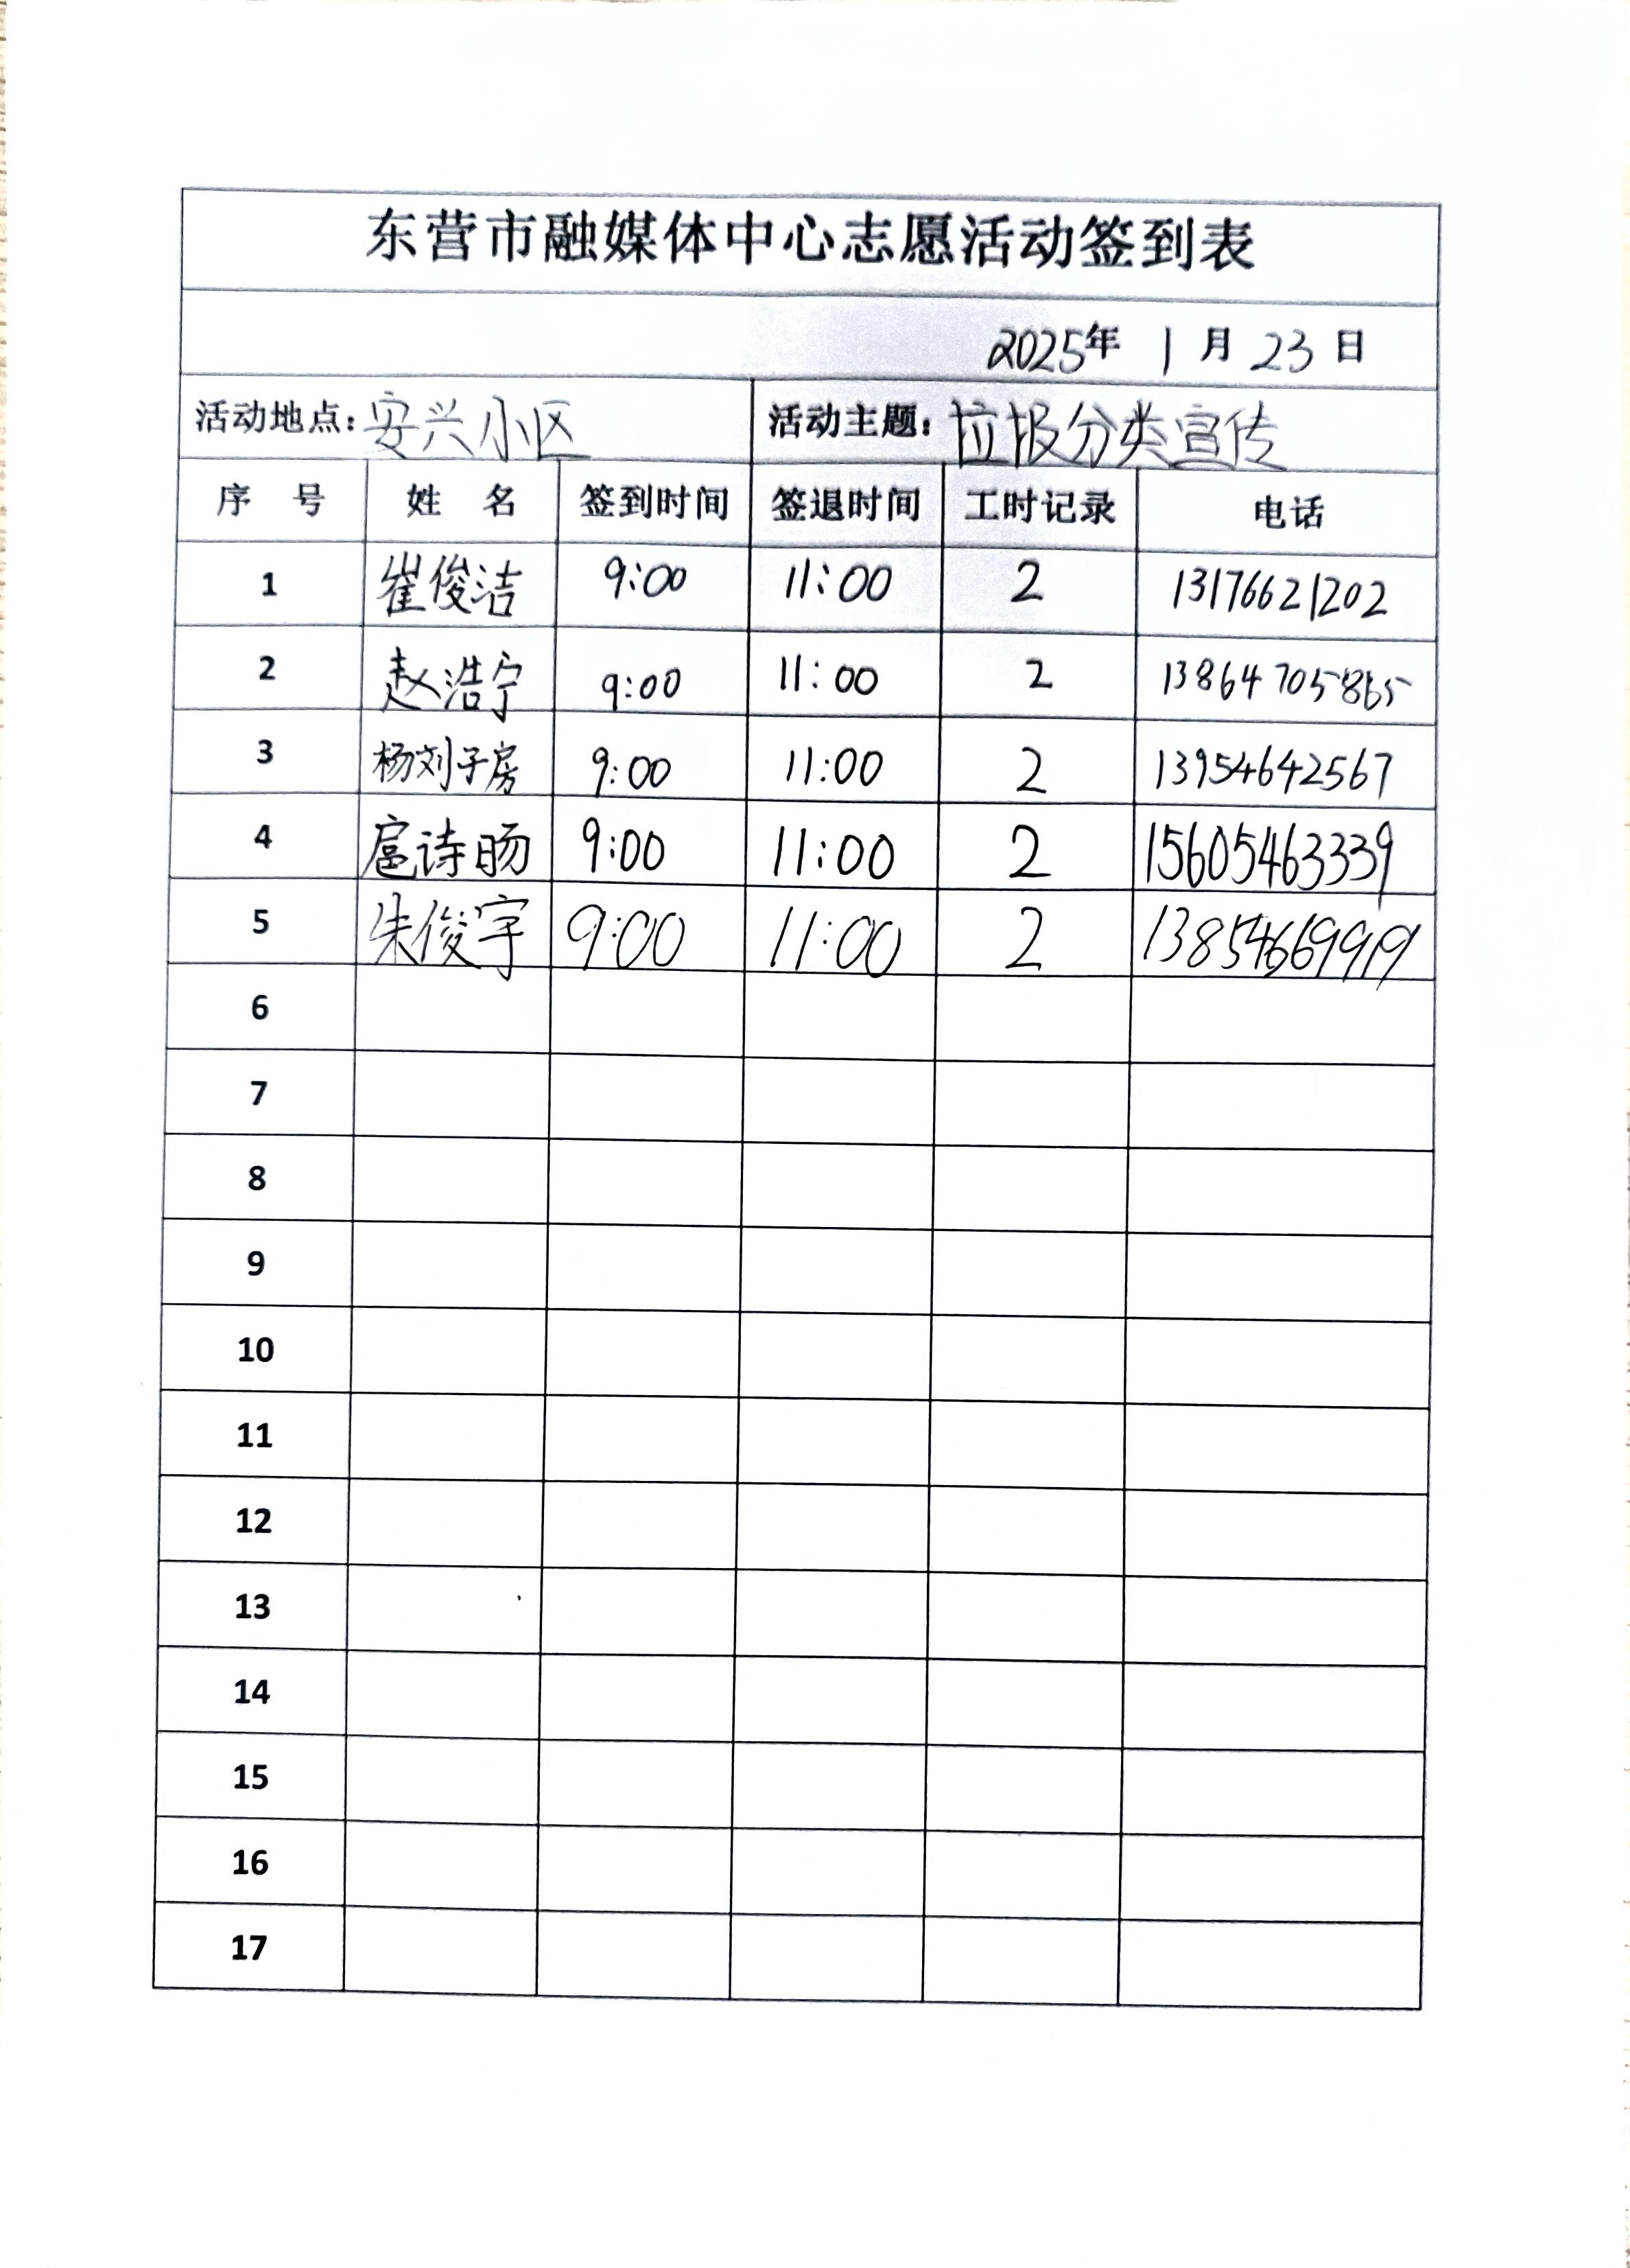 东营市融媒体中心志愿活动签到表
2025年 1月23日
活动地点：安兴小区 活动主题：垃圾分类宣传
序 号 姓 名 签到时间 签退时间 工时记录 电话
1 崔俊洁 9:00 11:00 2 13176621202
2 赵浩宁 9:00 11:00 2 13864705865
3 杨刘子房 9:00 11:00 2 13954642567
4 扈诗旸 9:00 11:00 2 15605463339
5 朱俊宇 9:00 11:00 2 13854669919
6
7
8
9
10
11
12
13
14
15
16
17